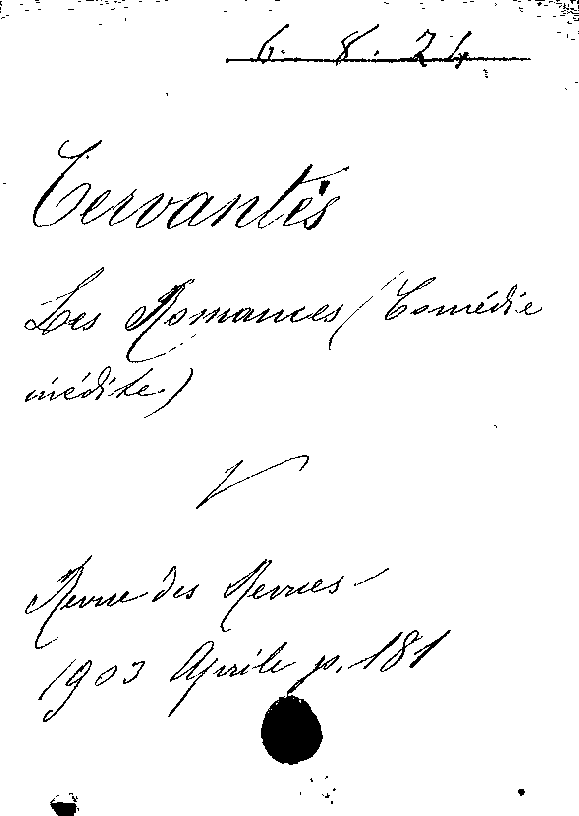 6. 8. 24
Cervantès
Les Romances (Comédie
inédite)
Revue des Revues -
1903 Aprile p. 181